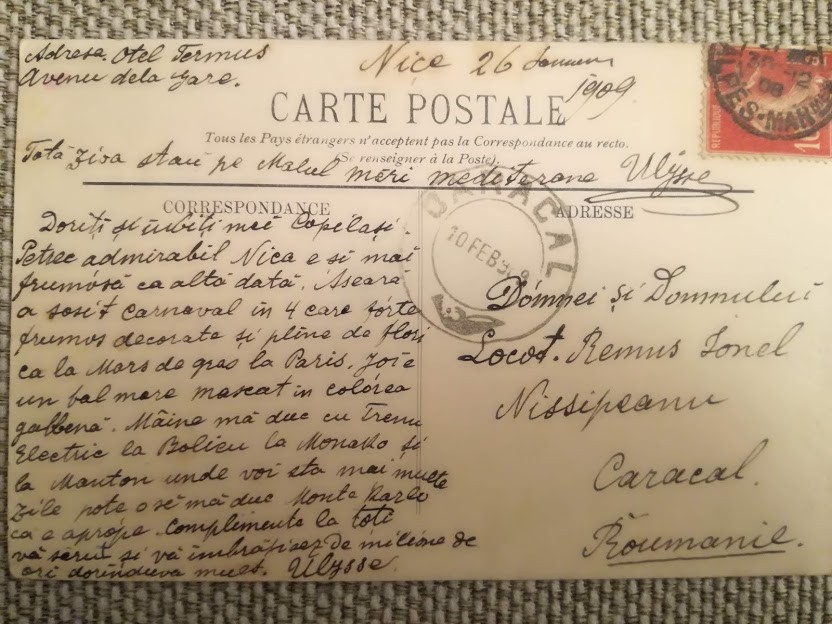 Adresa. Otel Termus
Avenu dela gare.
Nice 26
1909
CARTE POSTALE
Tous les Pays étrangers n'acceptent pas la Correspondance au recto.
(Se renseigner à la Poste).
Tótă zioa stau pe Malul mări mediterane Ulysse
CORRESPONDANCE
ADRESSE
Doriți și iubiți mei Copilași.
Petrec admirabil Nica e și mai
frumósă ca altă dată. Aseară
a sosit Carnaval in 4 care fórte
frumos decorate și pline de flori
ca la Mars de gras la Paris. Joie
un bal mare mascat in colórea
galbenă. Mâine mă duc cu Trenu
Electric la Bolieu la Monako și
la Manton unde voi sta mai multe
zile pote o să mă duc Monte Karlo
ca e aprópe. Complimente la toti
vă seru și vă îmbrățisez de milióne de
ori dorinduva mult. Ulysse.
Dómnei și Domnului
Locot. Remus Ionel
Nissipeanu
Caracal.
Roumanie.
CARACAL
10 FEB
ALPES-MAR